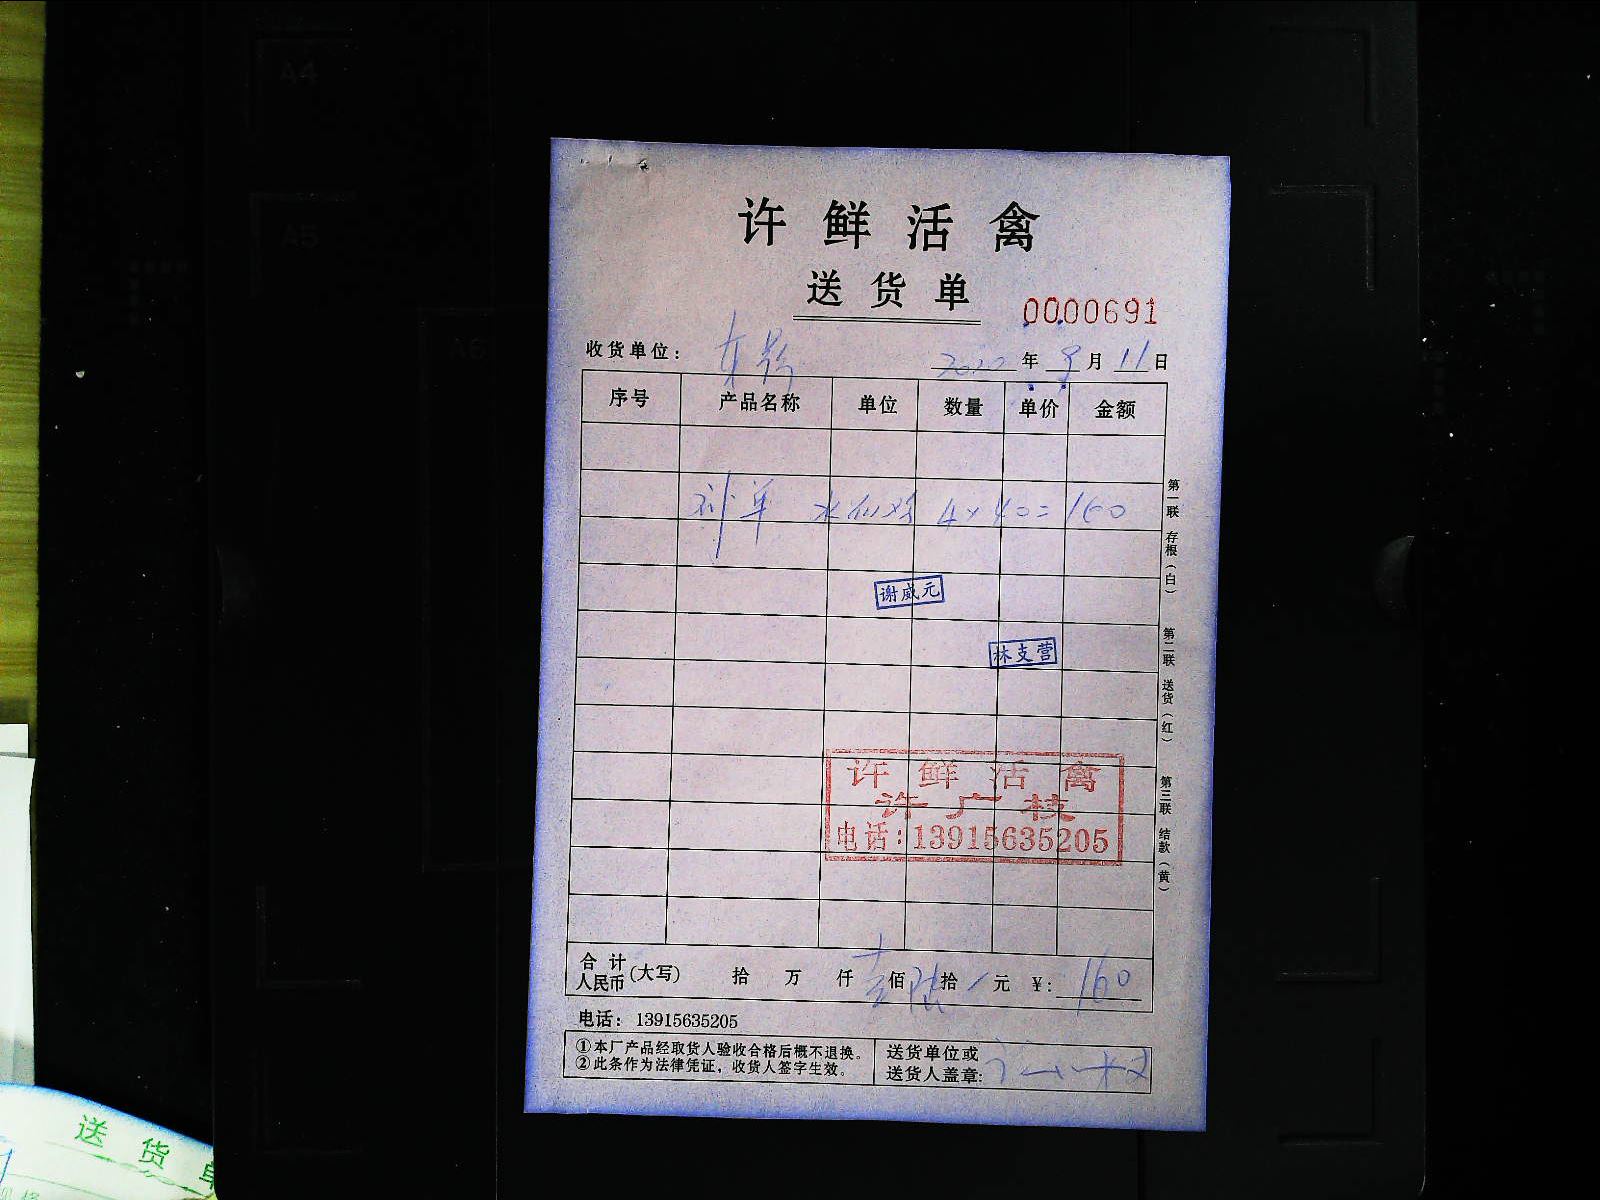 A4
A5
A6
许鲜活禽
送货单
0000691
收货单位：
2022年9月11日
序号 产品名称 单位 数量 单价 金额
4×40=160
谢威元
林支营
许鲜活禽
许广枝
电话:13915635205
第一联 存根（白）
第二联 送货（红）
第三联 结款（黄）
合计人民币(大写) 拾 万 仟 壹佰 陆拾 / 元 ¥: 160
电话：13915635205
①本厂产品经取货人验收合格后概不退换。
②此条作为法律凭证，收货人签字生效。
送货单位或
送货人盖章:
送货单